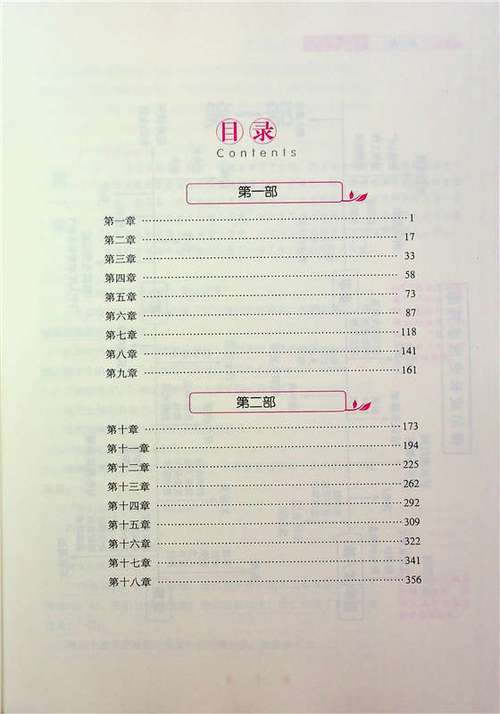 目录
Contents
第一部
第一章 1
第二章 17
第三章 33
第四章 58
第五章 73
第六章 87
第七章 118
第八章 141
第九章 161
第二部
第十章 173
第十一章 194
第十二章 225
第十三章 262
第十四章 292
第十五章 309
第十六章 322
第十七章 341
第十八章 356